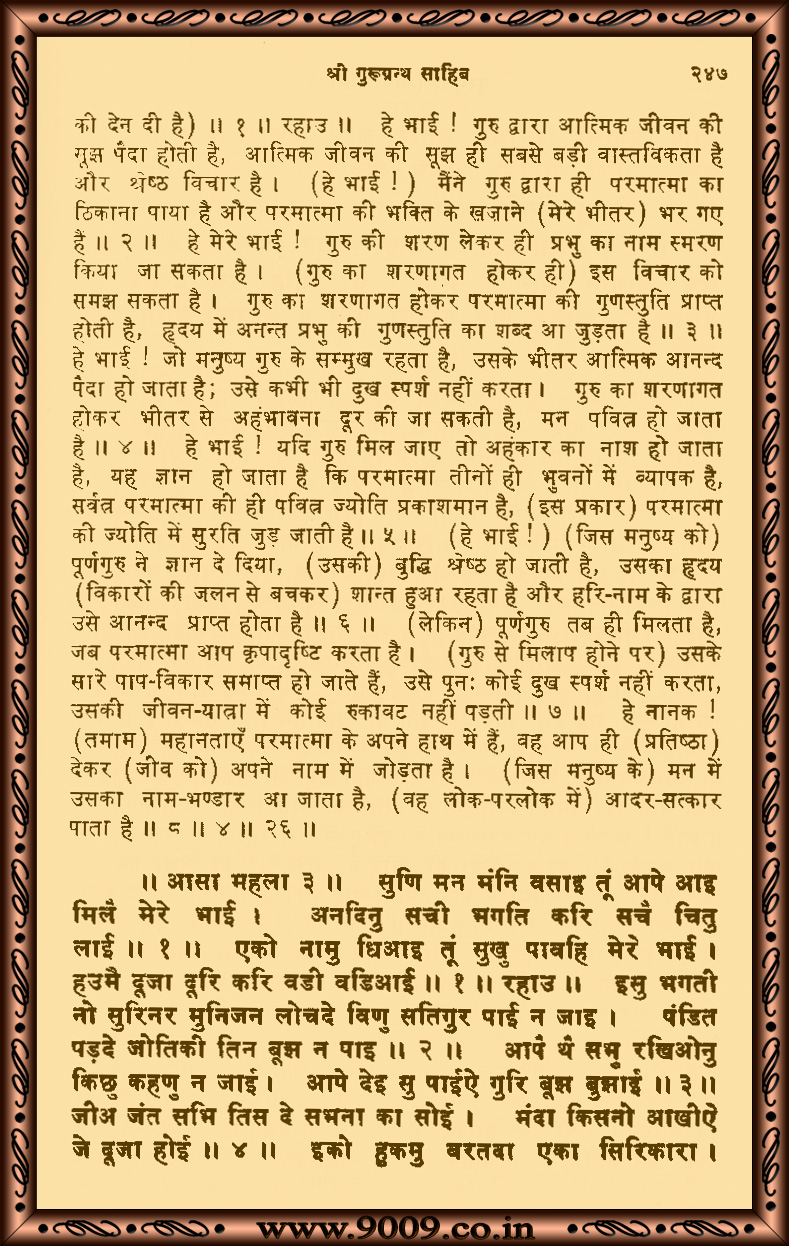 श्री गुरूग्रन्थ साहिब २४७
की देन दी है) ॥ १ ॥ रहाउ ॥ हे भाई ! गुरु द्वारा आत्मिक जीवन की
सूझ पैदा होती है, आत्मिक जीवन की सूझ ही सबसे बड़ी वास्तविकता है
और श्रेष्ठ विचार है । (हे भाई ! ) मैंने गुरु द्वारा ही परमात्मा का
ठिकाना पाया है और परमात्मा की भक्ति के खज़ाने (मेरे भीतर) भर गए
हैं ॥ २ ॥ हे मेरे भाई ! गुरु की शरण लेकर ही प्रभु का नाम स्मरण
किया जा सकता है । (गुरु का शरणागत होकर ही) इस विचार को
समझ सकता है । गुरु का शरणागत होकर परमात्मा की गुणस्तुति प्राप्त
होती है, हृदय में अनन्त प्रभु की गुणस्तुति का शब्द आ जुड़ता है ॥ ३ ॥
हे भाई ! जो मनुष्य गुरु के सम्मुख रहता है, उसके भीतर आत्मिक आनन्द
पैदा हो जाता है; उसे कभी भी दुख स्पर्श नहीं करता । गुरु का शरणागत
होकर भीतर से अहंभावना दूर की जा सकती है, मन पवित्र हो जाता
है ॥ ४ ॥ हे भाई ! यदि गुरु मिल जाए तो अहंकार का नाश हो जाता
है, यह ज्ञान हो जाता है कि परमात्मा तीनों ही भुवनों में व्यापक है,
सर्वत्र परमात्मा की ही पवित्र ज्योति प्रकाशमान है, (इस प्रकार) परमात्मा
की ज्योति में सुरति जुड़ जाती है ॥ ५ ॥ (हे भाई ! ) (जिस मनुष्य को)
पूर्णगुरु ने ज्ञान दे दिया, (उसकी) बुद्धि श्रेष्ठ हो जाती है, उसका हृदय
(विकारों की जलन से बचकर) शान्त हुआ रहता है और हरि-नाम के द्वारा
उसे आनन्द प्राप्त होता है ॥ ६ ॥ (लेकिन) पूर्णगुरु तब ही मिलता है,
जब परमात्मा आप कृपादृष्टि करता है । (गुरु से मिलाप होने पर) उसके
सारे पाप-विकार समाप्त हो जाते हैं, उसे पुनः कोई दुख स्पर्श नहीं करता,
उसकी जीवन-यात्रा में कोई रुकावट नहीं पड़ती ॥ ७ ॥ हे नानक !
(तमाम) महानताएँ परमात्मा के अपने हाथ में हैं, वह आप ही (प्रतिष्ठा)
देकर (जीव को) अपने नाम में जोड़ता है । (जिस मनुष्य के) मन में
उसका नाम-भण्डार आ जाता है, (वह लोक-परलोक में) आदर-सत्कार
पाता है ॥ ८ ॥ ४ ॥ २६ ॥
॥ आसा महला ३ ॥ सुणि मन मंनि वसाइ तूं आपे आइ
मिलै मेरे भाई । अनदिनु सची भगति करि सचै चितु
लाई ॥ १ ॥ एको नामु धिआइ तूं सुखु पावहि मेरे भाई ।
हउमै दूजा दूरि करि वडी वडिआई ॥ १ ॥ रहाउ ॥ इसु भगती
नो सुरिनर मुनिजन लोचदे विणु सतिगुर पाई न जाइ । पंडित
पड़दे जोतिकी तिन बूझ न पाइ ॥ २ ॥ आपै थै सभु रखिओनु
किछु कहणु न जाई । आपे देइ सु पाईऐ गुरि बूझ बुझाई ॥ ३ ॥
जीअ जंत सभि तिस दे सभना का सोई । मंदा किसनो आखीऐ
जे दूजा होई ॥ ४ ॥ इको हुकमु वरतदा एका सिरिकारा ।
www.9009.co.in